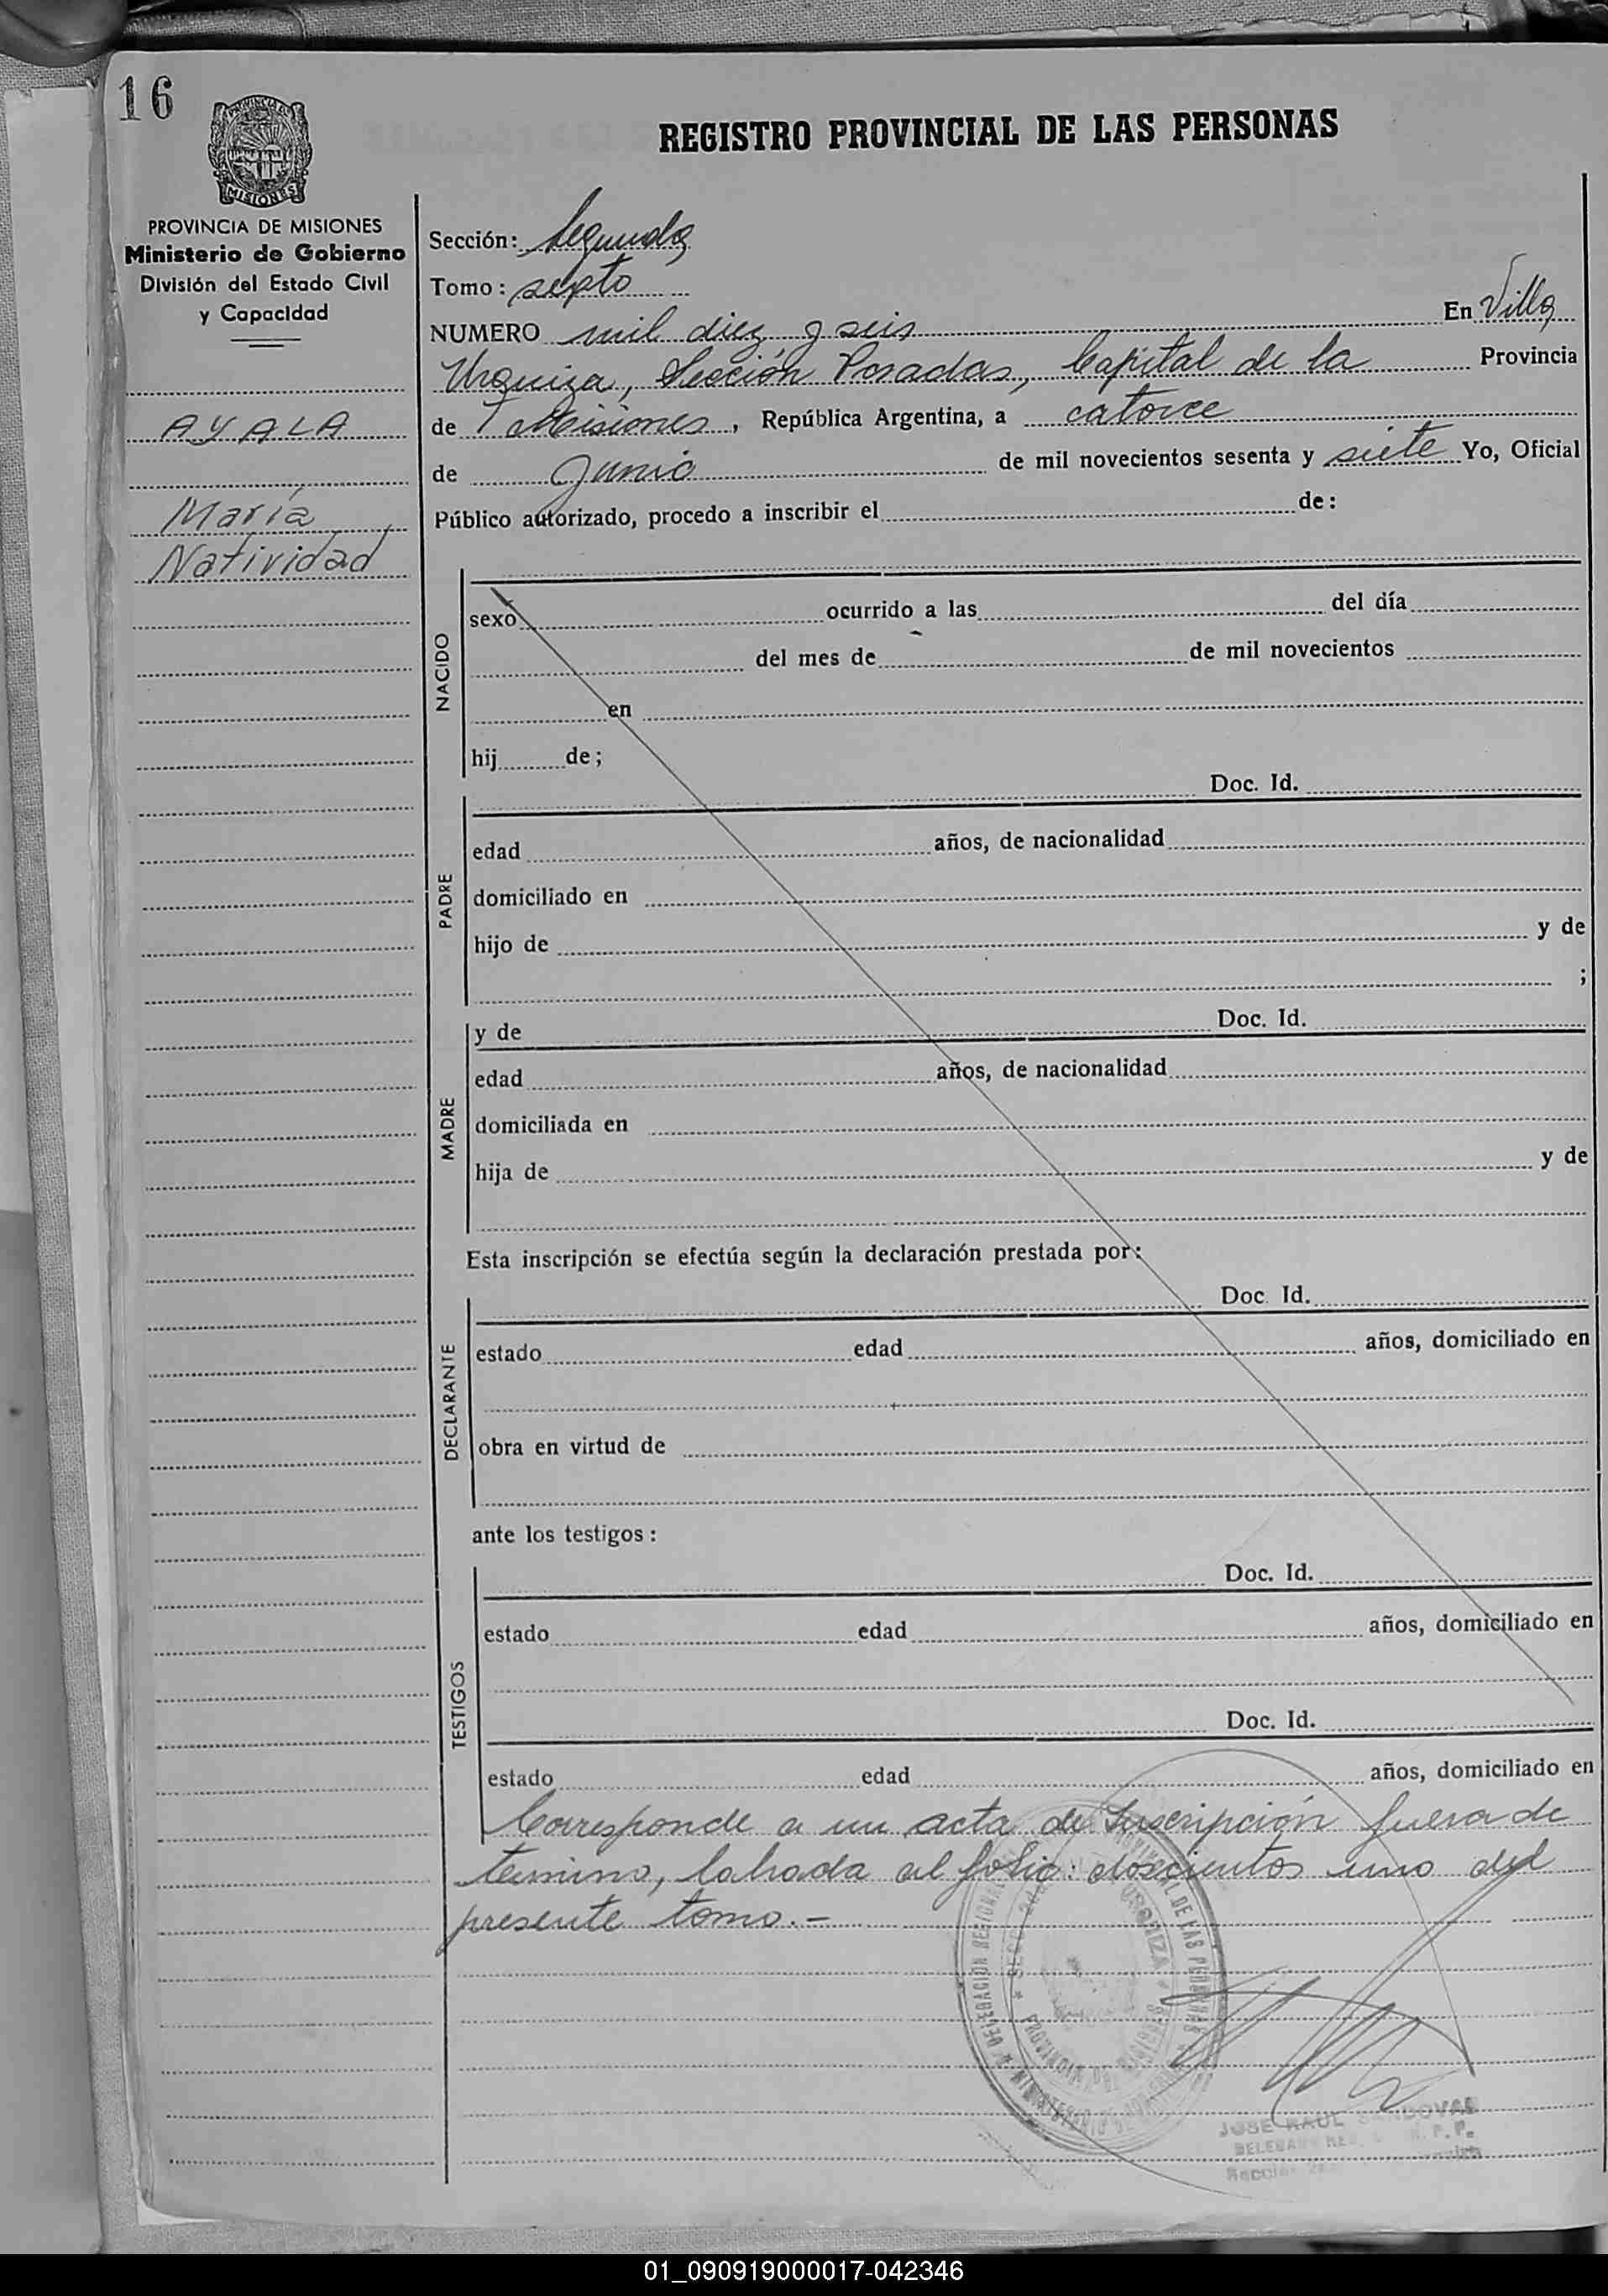 16
REGISTRO PROVINCIAL DE LAS PERSONAS
PROVINCIA DE MISIONES
Ministerio de Gobierno
División del Estado Civil
y Capacidad
AYALA
María
Natividad
Sección: Segunda
Tomo: septo
NUMERO mil diez y seis En Villa
Urquiza, Sección Posadas, Capital de la Provincia
de Misiones, República Argentina, a catorce
de Junio de mil novecientos sesenta y siete Yo, Oficial
Público autorizado, procedo a inscribir el de:
NACIDO
sexo ocurrido a las del día
del mes de de mil novecientos
en
hij de;
PADRE
Doc. Id.
edad años, de nacionalidad
domiciliado en
hijo de y de
;
MADRE
y de Doc. Id.
edad años, de nacionalidad
domiciliada en
hija de y de
Esta inscripción se efectúa según la declaración prestada por:
DECLARANTE
Doc. Id.
estado edad años, domiciliado en
obra en virtud de
ante los testigos:
TESTIGOS
Doc. Id.
estado edad años, domiciliado en
Doc. Id.
estado edad años, domiciliado en
Corresponde a un acta de Inscripción fuera de
termino, labrada al folio: doscientos uno del
presente tomo.-
JOSE RAUL SANDOVAL
01_090919000017-042346